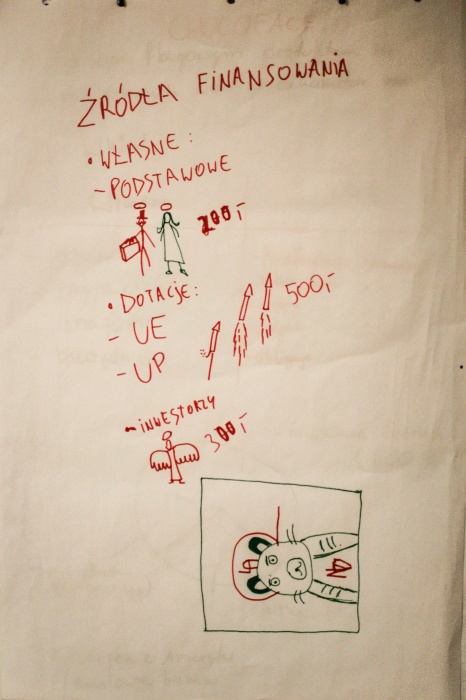 ŹRÓDŁA FINANSOWANIA
• WŁASNE:
- PODSTAWOWE
200,-
• DOTACJE:
- UE
- UP
500,-
- INWESTORZY
300,-